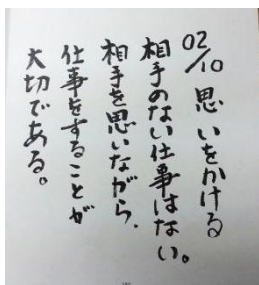 02/10 思いをかける
相手のない仕事はない。
相手を思いながら、
仕事をすることが
大切である。